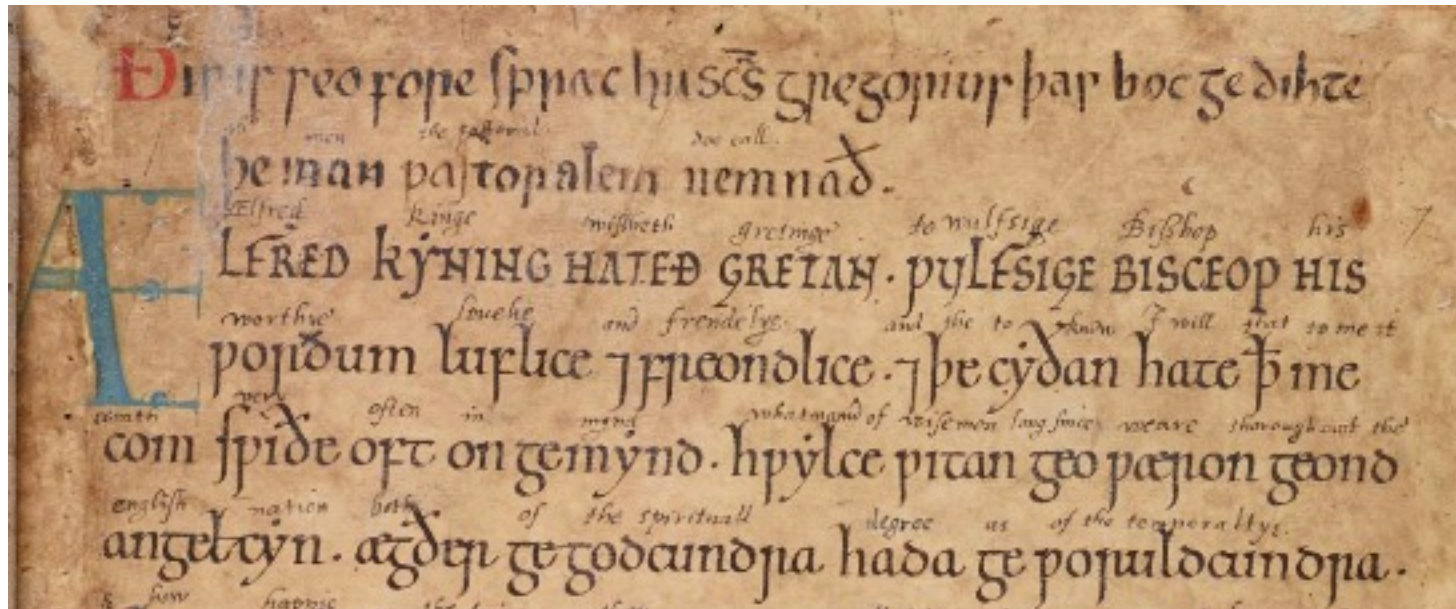 Ðis is seo fore spræc hu sc̄s gregorius þas boc ge dihte
men the pastoral doe call.
þe man pastoralem nemnað.
Ælfred kinge wissheth gretinge to wulfsige Bisshop his
ÆLFRED KẎNING HATEÐ GRETAN · ǷYLFSIGE BISCEOP HIS
worthie and frendelye. and the to know I will that to me it
ƿorðum luflice ⁊ freondlice · ⁊ þe cẏðan hate ꝥ me
cometh very often in mynd what manner of wisemen long since weare thoroughout the
com sƿiðe oft on gemẏnd · hƿẏlce ƿitan geo ƿæron geond
english nation both of the spirituall degree as of the temporaltye.
angelcẏn · ægðer ge godcundra hada ge ƿoruldcundra ·
how happie